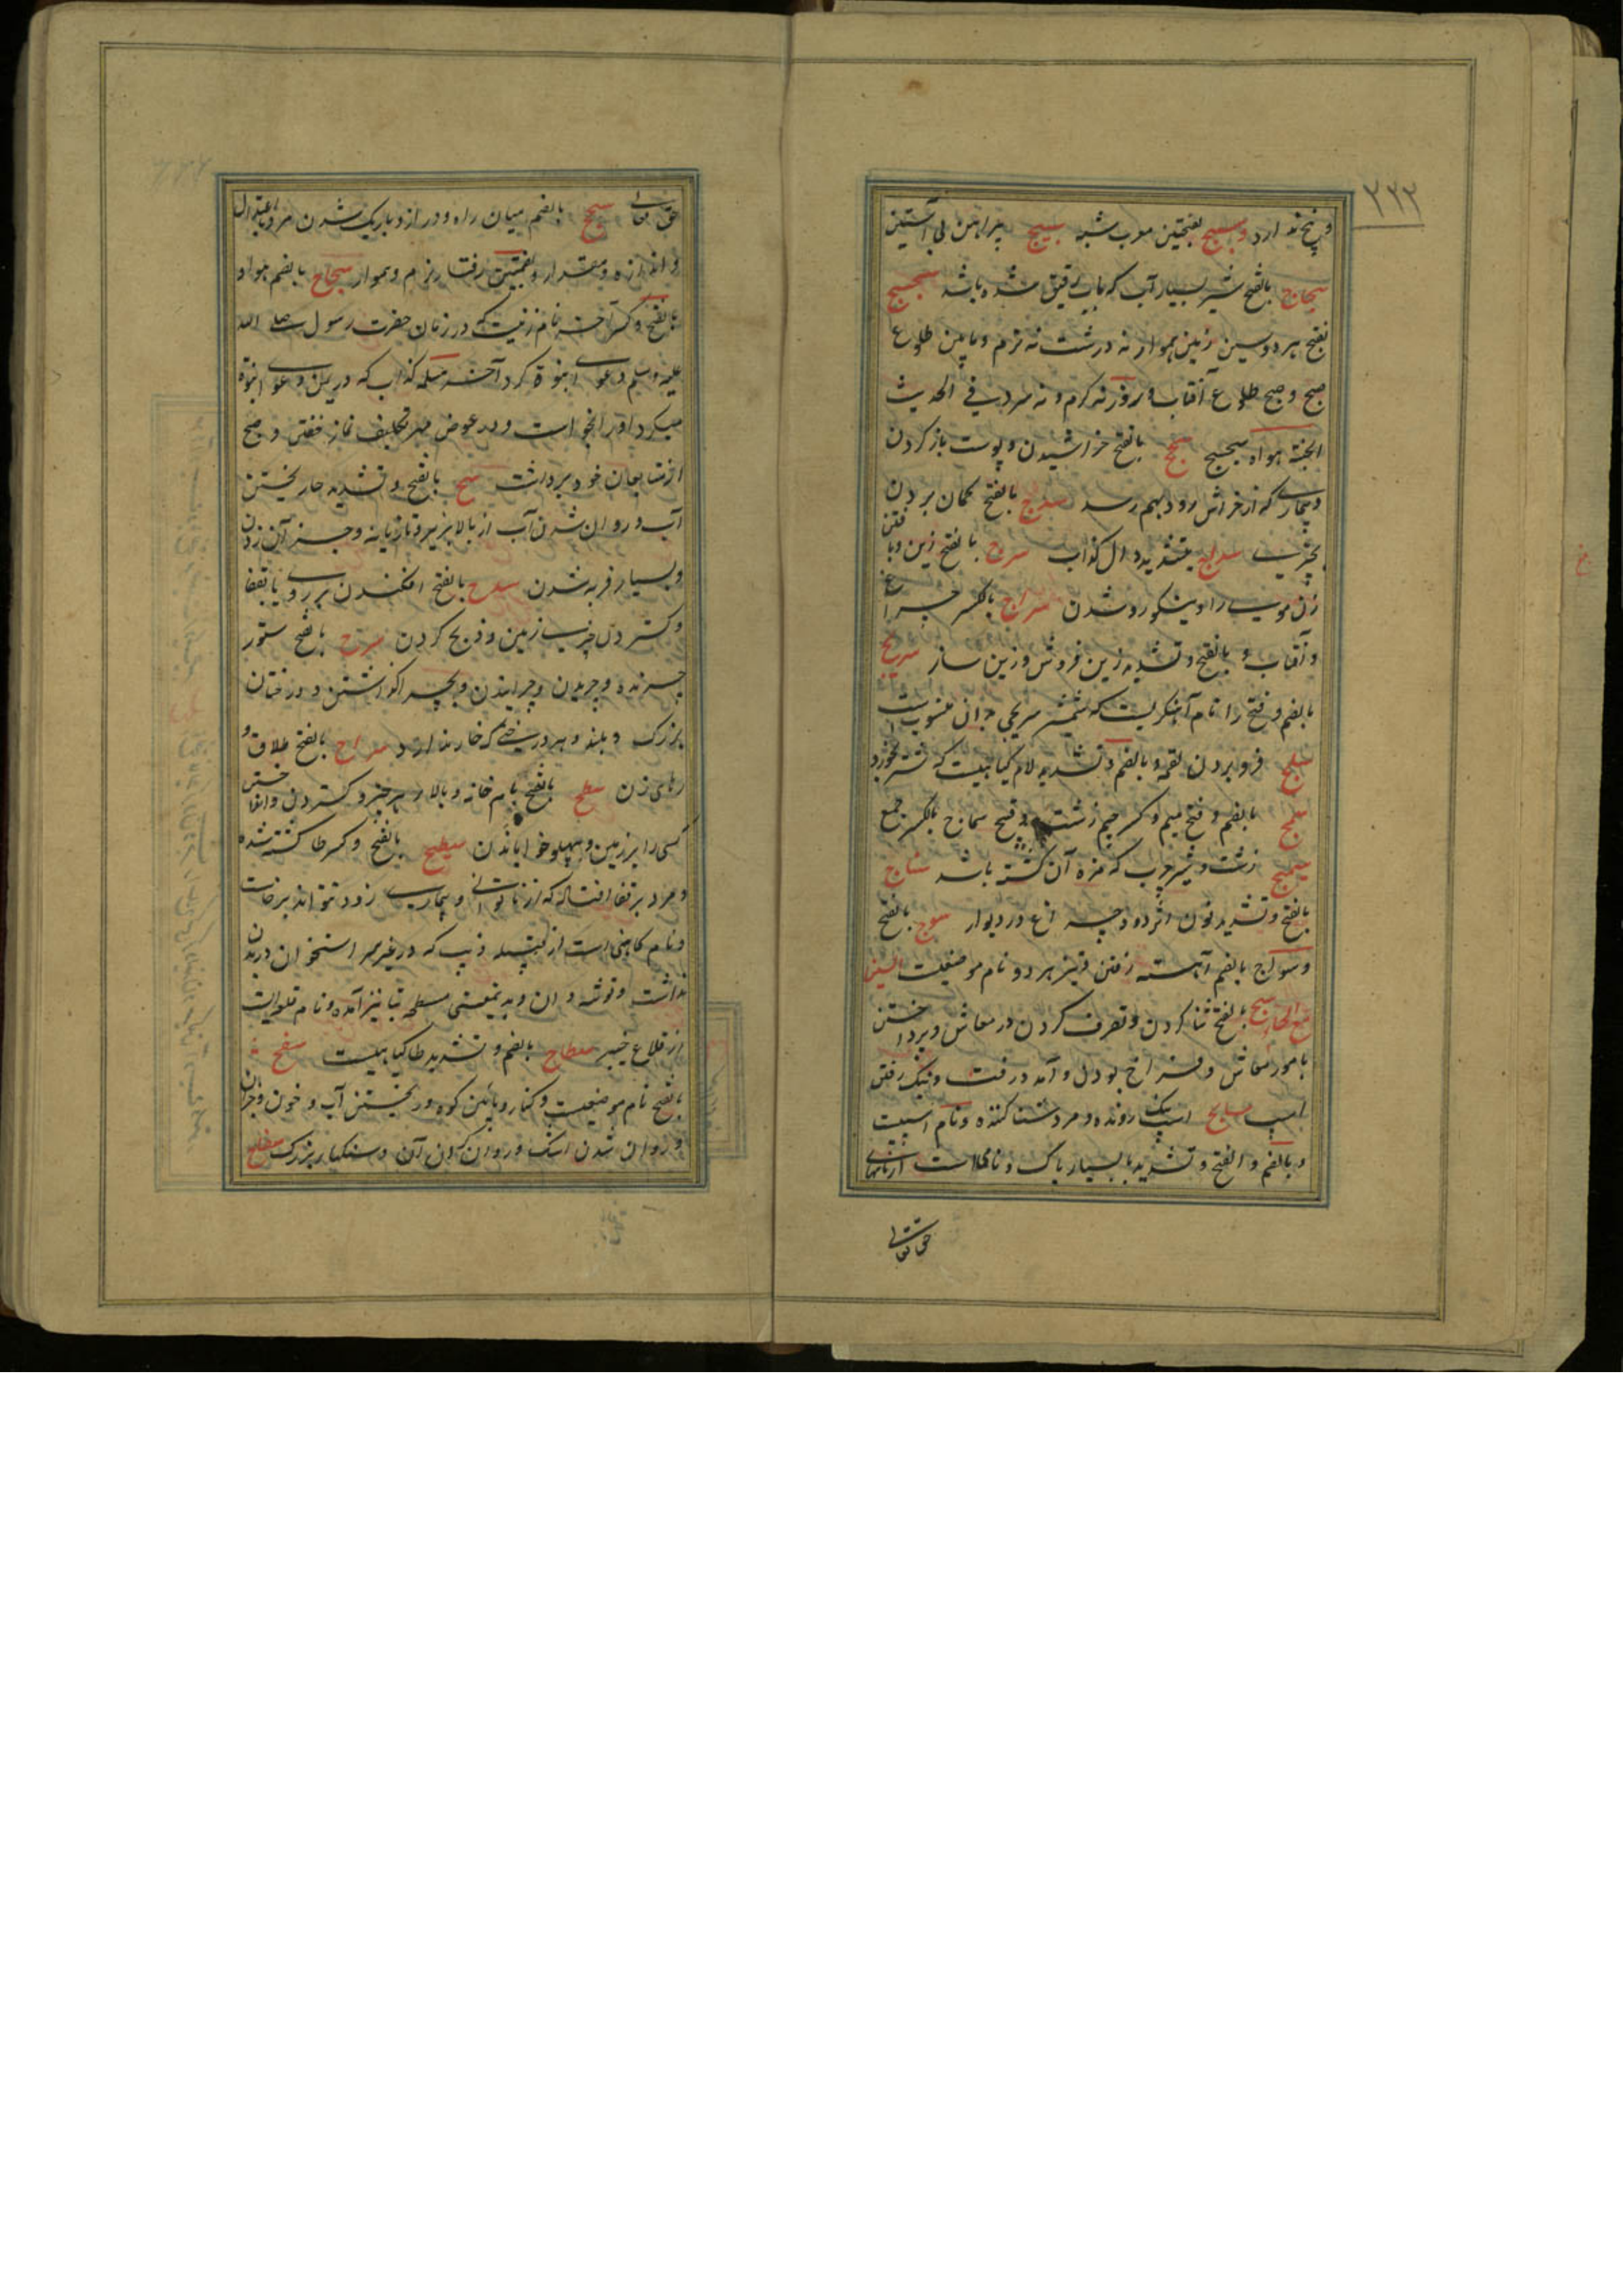 ۲۲۲
و پنج ندارد و سبج بفتحتین معرب شبه سبیج پیراهن بی آستین
سجاج بالفتح شیر بسیار آب که بآب رقیق شده باشد سجسج
بفتح هر دو سین زمین هموار نه درشت نه نرم و مابین طلوع
صبح و صبح طلوع آفتاب و روز نه گرم و نه سرد فی الحدیث
الجنة هواه سجسج سحج بالفتح خراشیدن و پوست باز کردن
و بیماری که از خراش روده بهم رسد سدج بالفتح گمان بردن
بچیزی سداج بتشدید دال کذاب سرج بالفتح زین و بافتن
زن موی را و نیکو رو شدن سراج بالکسر چراغ
و آفتاب و بالفتح و تشدید زین فروش و زین ساز سریج
بالضم و فتح را نام آهنگریست که شمشیر سریجی بدان منسوبست
سلج فرو بردن لقمه و بالضم و تشدید لام گیاهیست که شتر میخورد
سمج بالضم و فتح میم و کسر جیم زشت و قبیح سماج بالکسر جمع
سمیج زشت و شیر چرب که مزه آن گشته باشد سناج
بالفتح و تشدید نون اثر دود چراغ در دیوار سوج بالفتح
و سواج بالضم آهسته رفتن و نیز هر دو نام موضعیست السین
مع الحاء سبح بالفتح شنا کردن و تصرف کردن در معاش و پرداختن
بامور معاش و فراخ بودن و آمد و رفت و نیک رفتن
اسپ سابح اسپ نیک رونده و مرد شنا کننده و نام اسپیست
و بالضم و الفتح و تشدید با بسیار پاک و نامی است از نامهای
حق تعالی
حق تعالی سجح بالضم میان راه و دراز و باریک شدن مرد باعتدال
و اندازه و مقدار و بضمتین رفتار نرم و هموار سجاح بالضم هوا و
بالفتح و کسر آخر نام زنیست که در زمان حضرت رسول صلی الله
علیه و سلم دعوای نبوة کرد آخر مسیلمه کذاب که در یمن دعوی نبوة
میکرد او را بخواست و در عوض مهر تکلیف نماز خفتن و صبح
از متابعان خود برداشت سح بالفتح و تشدید حا ریختن
آب و روان شدن آب از بالا بزیر و تازیانه و جز آن زدن
و بسیار فربه شدن سدح بالفتح افکندن بر روی یا بقفا
و گستردن چیزی بزمین و ذبح کردن سرح بالفتح ستور
چرنده و چریدن و چرانیدن و بچرا گذاشتن و درختان
بزرگ و بلند و هر درختی که خار ندارد سراح بالفتح طلاق و
رهای زن سطح بالفتح بام خانه و بالا هر چیز و گستردن و انداختن
کسی را بر زمین و بپهلو خوابانیدن سطیح بالفتح و کسر طا کشته شده
و مرد بر قفا افتاده که از ناتوانی و بیماری زود نتواند برخاست
و نام کاهنی است از قبیله ذیب که در غیر سر استخوان در بدن
نداشت و توشه دان و به نیمعنی مسطحه بتا نیز آمده و نام قلعه‌ایست
از قلاع خیبر سطاح بالضم و تشدید طا گیاهیست سفح
بالفتح نام موضعیست و کنار و پائین کوه و ریختن آب و خون و جز آن
و روان شدن اشک و روان کردن آن و سنگهای بزرگ سفاح